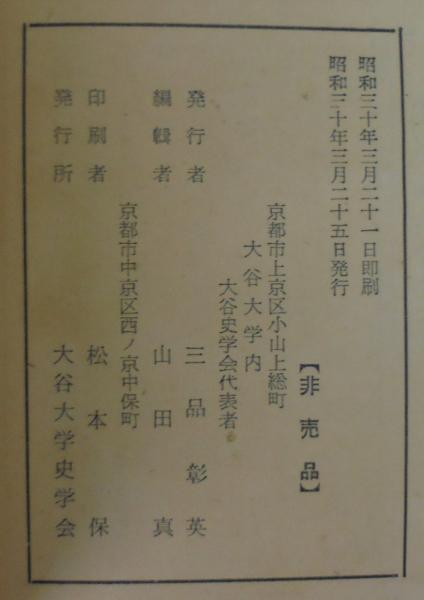 昭和三十年三月二十一日印刷
昭和三十年三月二十五日発行
【非売品】
京都市上京区小山上総町
大谷大学内
大谷史学会代表者
発行者 三品彰英
編輯者 山田真
京都市中京区西ノ京中保町
印刷者 松本保
発行所 大谷大学史学会